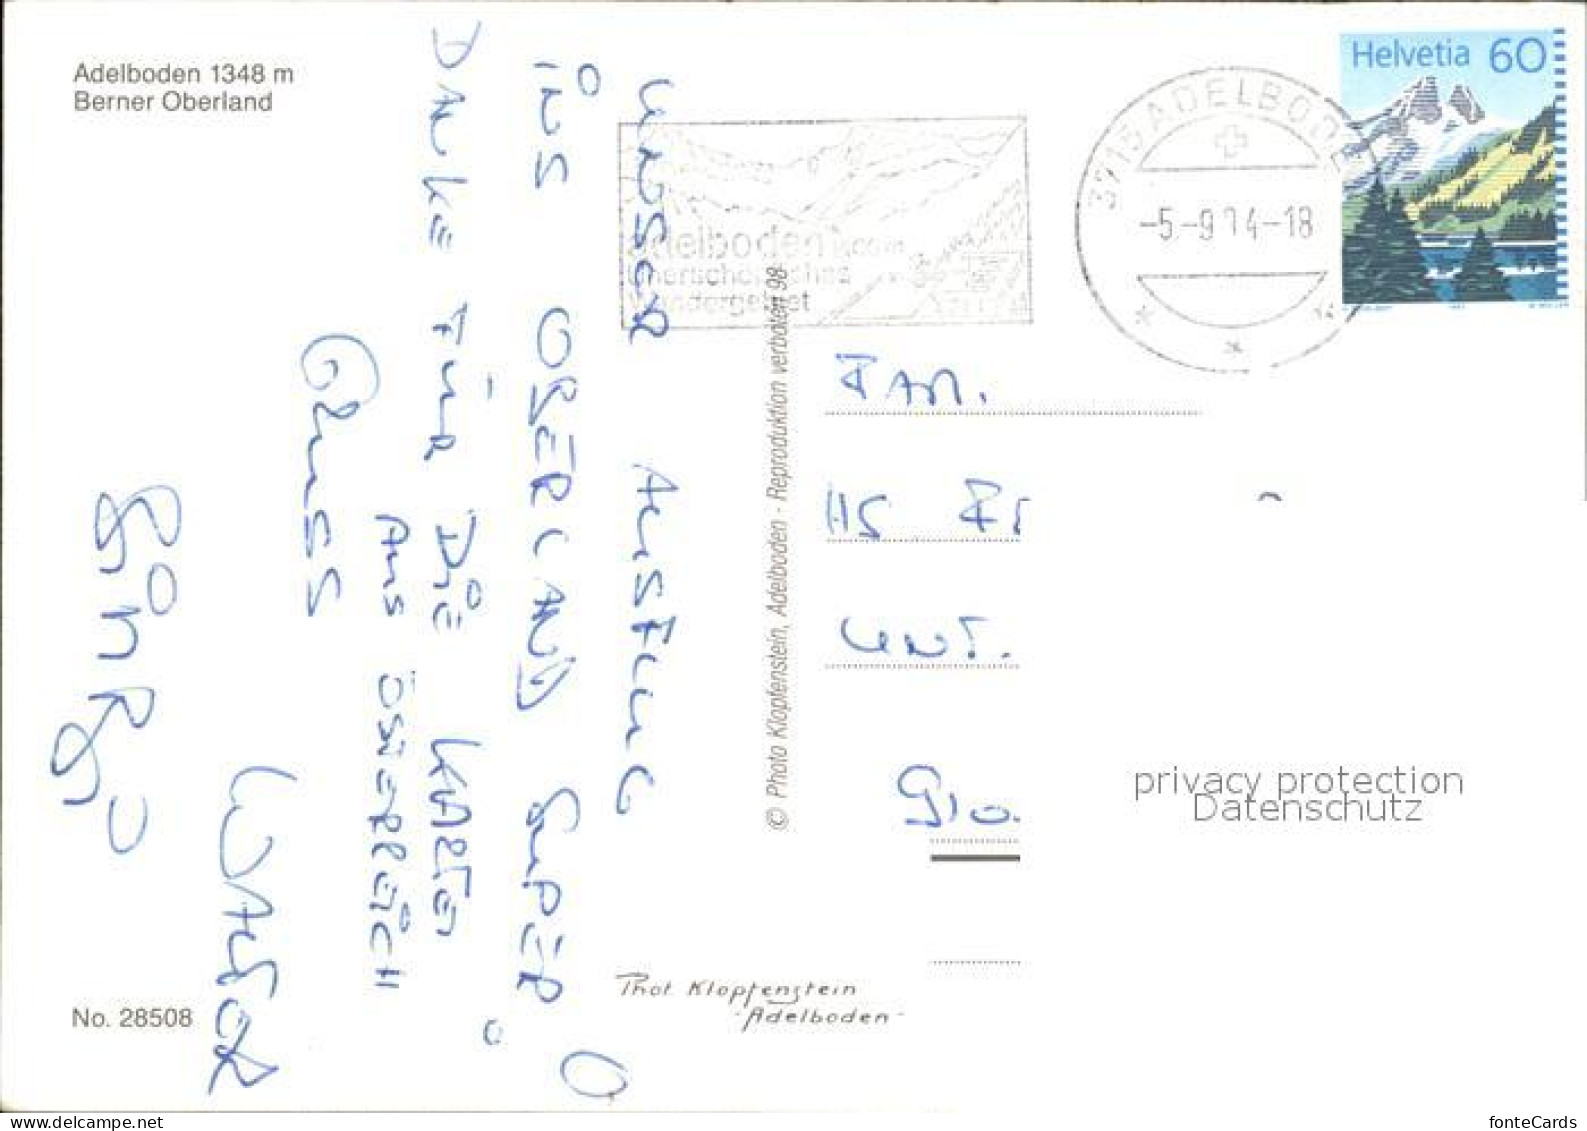 Adelboden 1348 m
Berner Oberland
Helvetia 60
ADELBODEN
-5.-9.14-18
adelboden.com
Wandergebiet
UNSER AUSFLUG
INS OBERLAND SUPER
DANKE FÜR DIE KARTEN
AUS ÖSTERREICH
GRUSS
WALTER
© Photo Klopfenstein, Adelboden - Reproduktion verboten 98
FAM.
HS
UNT.
privacy protection
Datenschutz
Phot. Klopfenstein
-Adelboden-
No. 28508
www.delcampe.net
fonteCards